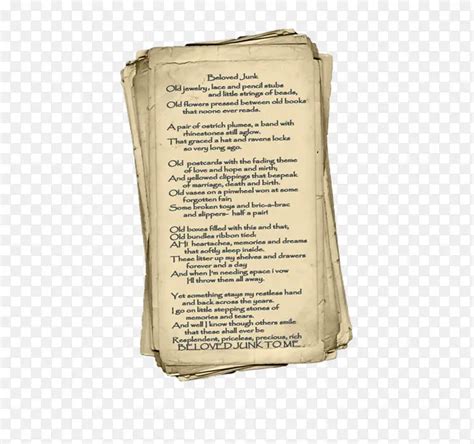 Beloved Junk
Old jewelry, lace and pencil stubs
and little strings of beads,
Old flowers pressed between old books
that noone ever reads.
A pair of ostrich plumes, a band with
rhinestones still aglow.
That graced a hat and ravens locks
so very long ago.
Old postcards with the fading theme
of love and hope and mirth;
And yellowed clippings that bespeak
of marriage, death and birth.
Old vases on a pinwheel won at some
forgotten fair;
Some broken toys and bric-a-brac
and slippers- half a pair!
Old boxes filled with this and that;
Old bundles ribbon tied;
AH! heartaches, memories and dreams
that softly sleep inside.
These litter up my shelves and drawers
forever and a day
And when I'm needing space i vow
I'll throw them all away.
Yet something stays my restless hand
and back across the years.
I go on little stepping stones of
memories and tears.
And well I know though others smile
that these shall ever be
Resplendent, priceless, precious, rich
BELOVED JUNK TO ME